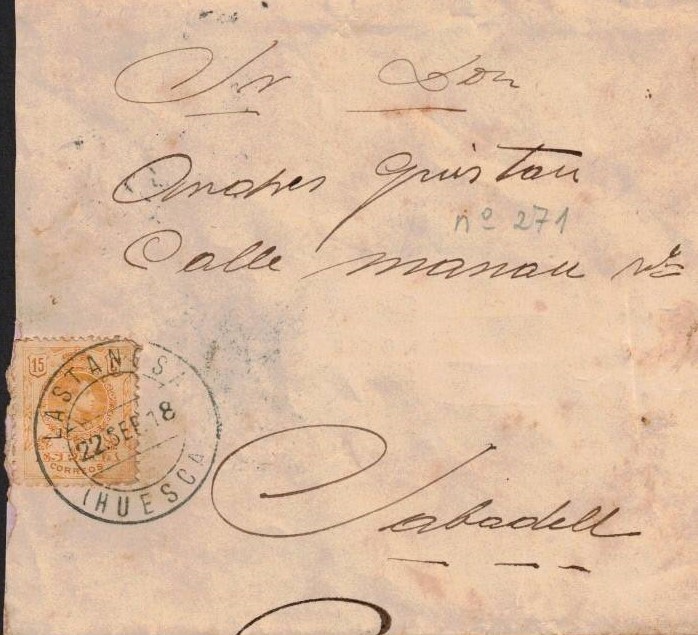 Sr Don
Andres Quistau
nº 271
Calle manau nº
15
LASTANOSA
22 SEP 18
CORREOS
(HUESCA)
Sabadell